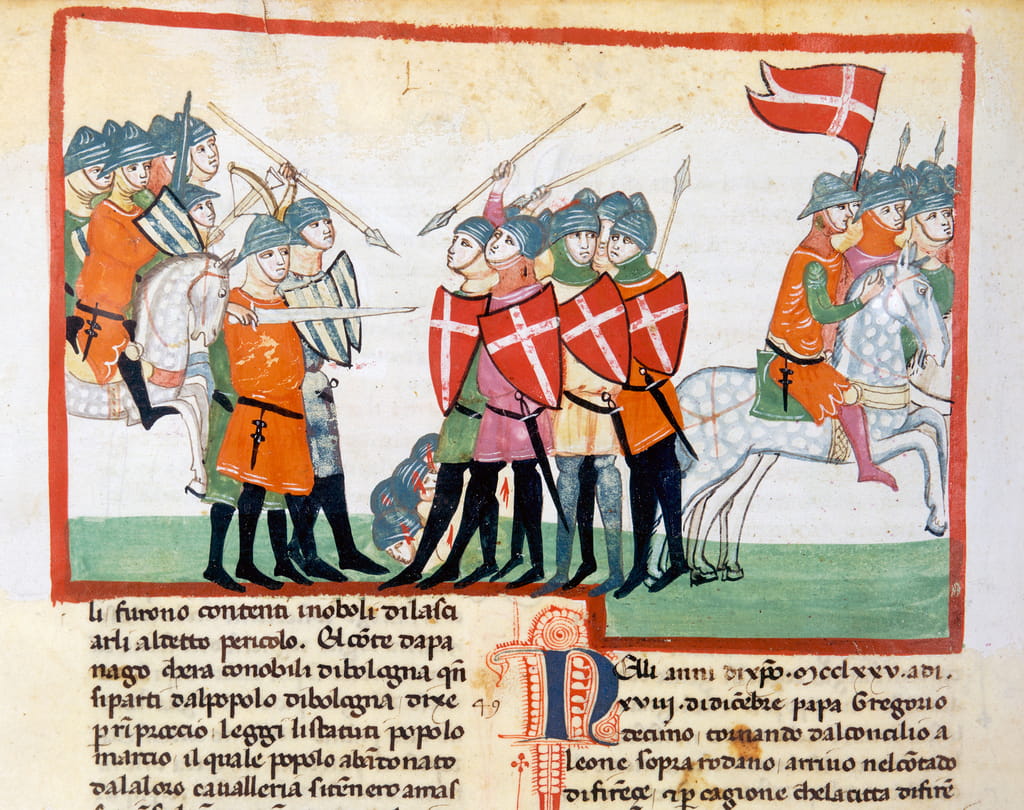 li furono contenti inoboli dilasci
arli aldetto pericolo. El cōte dapa
nago chera conobili dibologna qn̄
siparti dalpopolo dibologna dixe
p rīprocio leggi listatuti popolo
marcio il quale popolo abādonato
dalaloro cavalleria sitēnero amas
49
Nelli anni dixp̄o. MCCLXXV. adi.
XVIII. didicēbre papa Gregorio
decimo, tornando dalconcilio a
leone sopra rodano, arrivo nelcōtado
difirēze, ⁊ p cagione chelacitta difirē